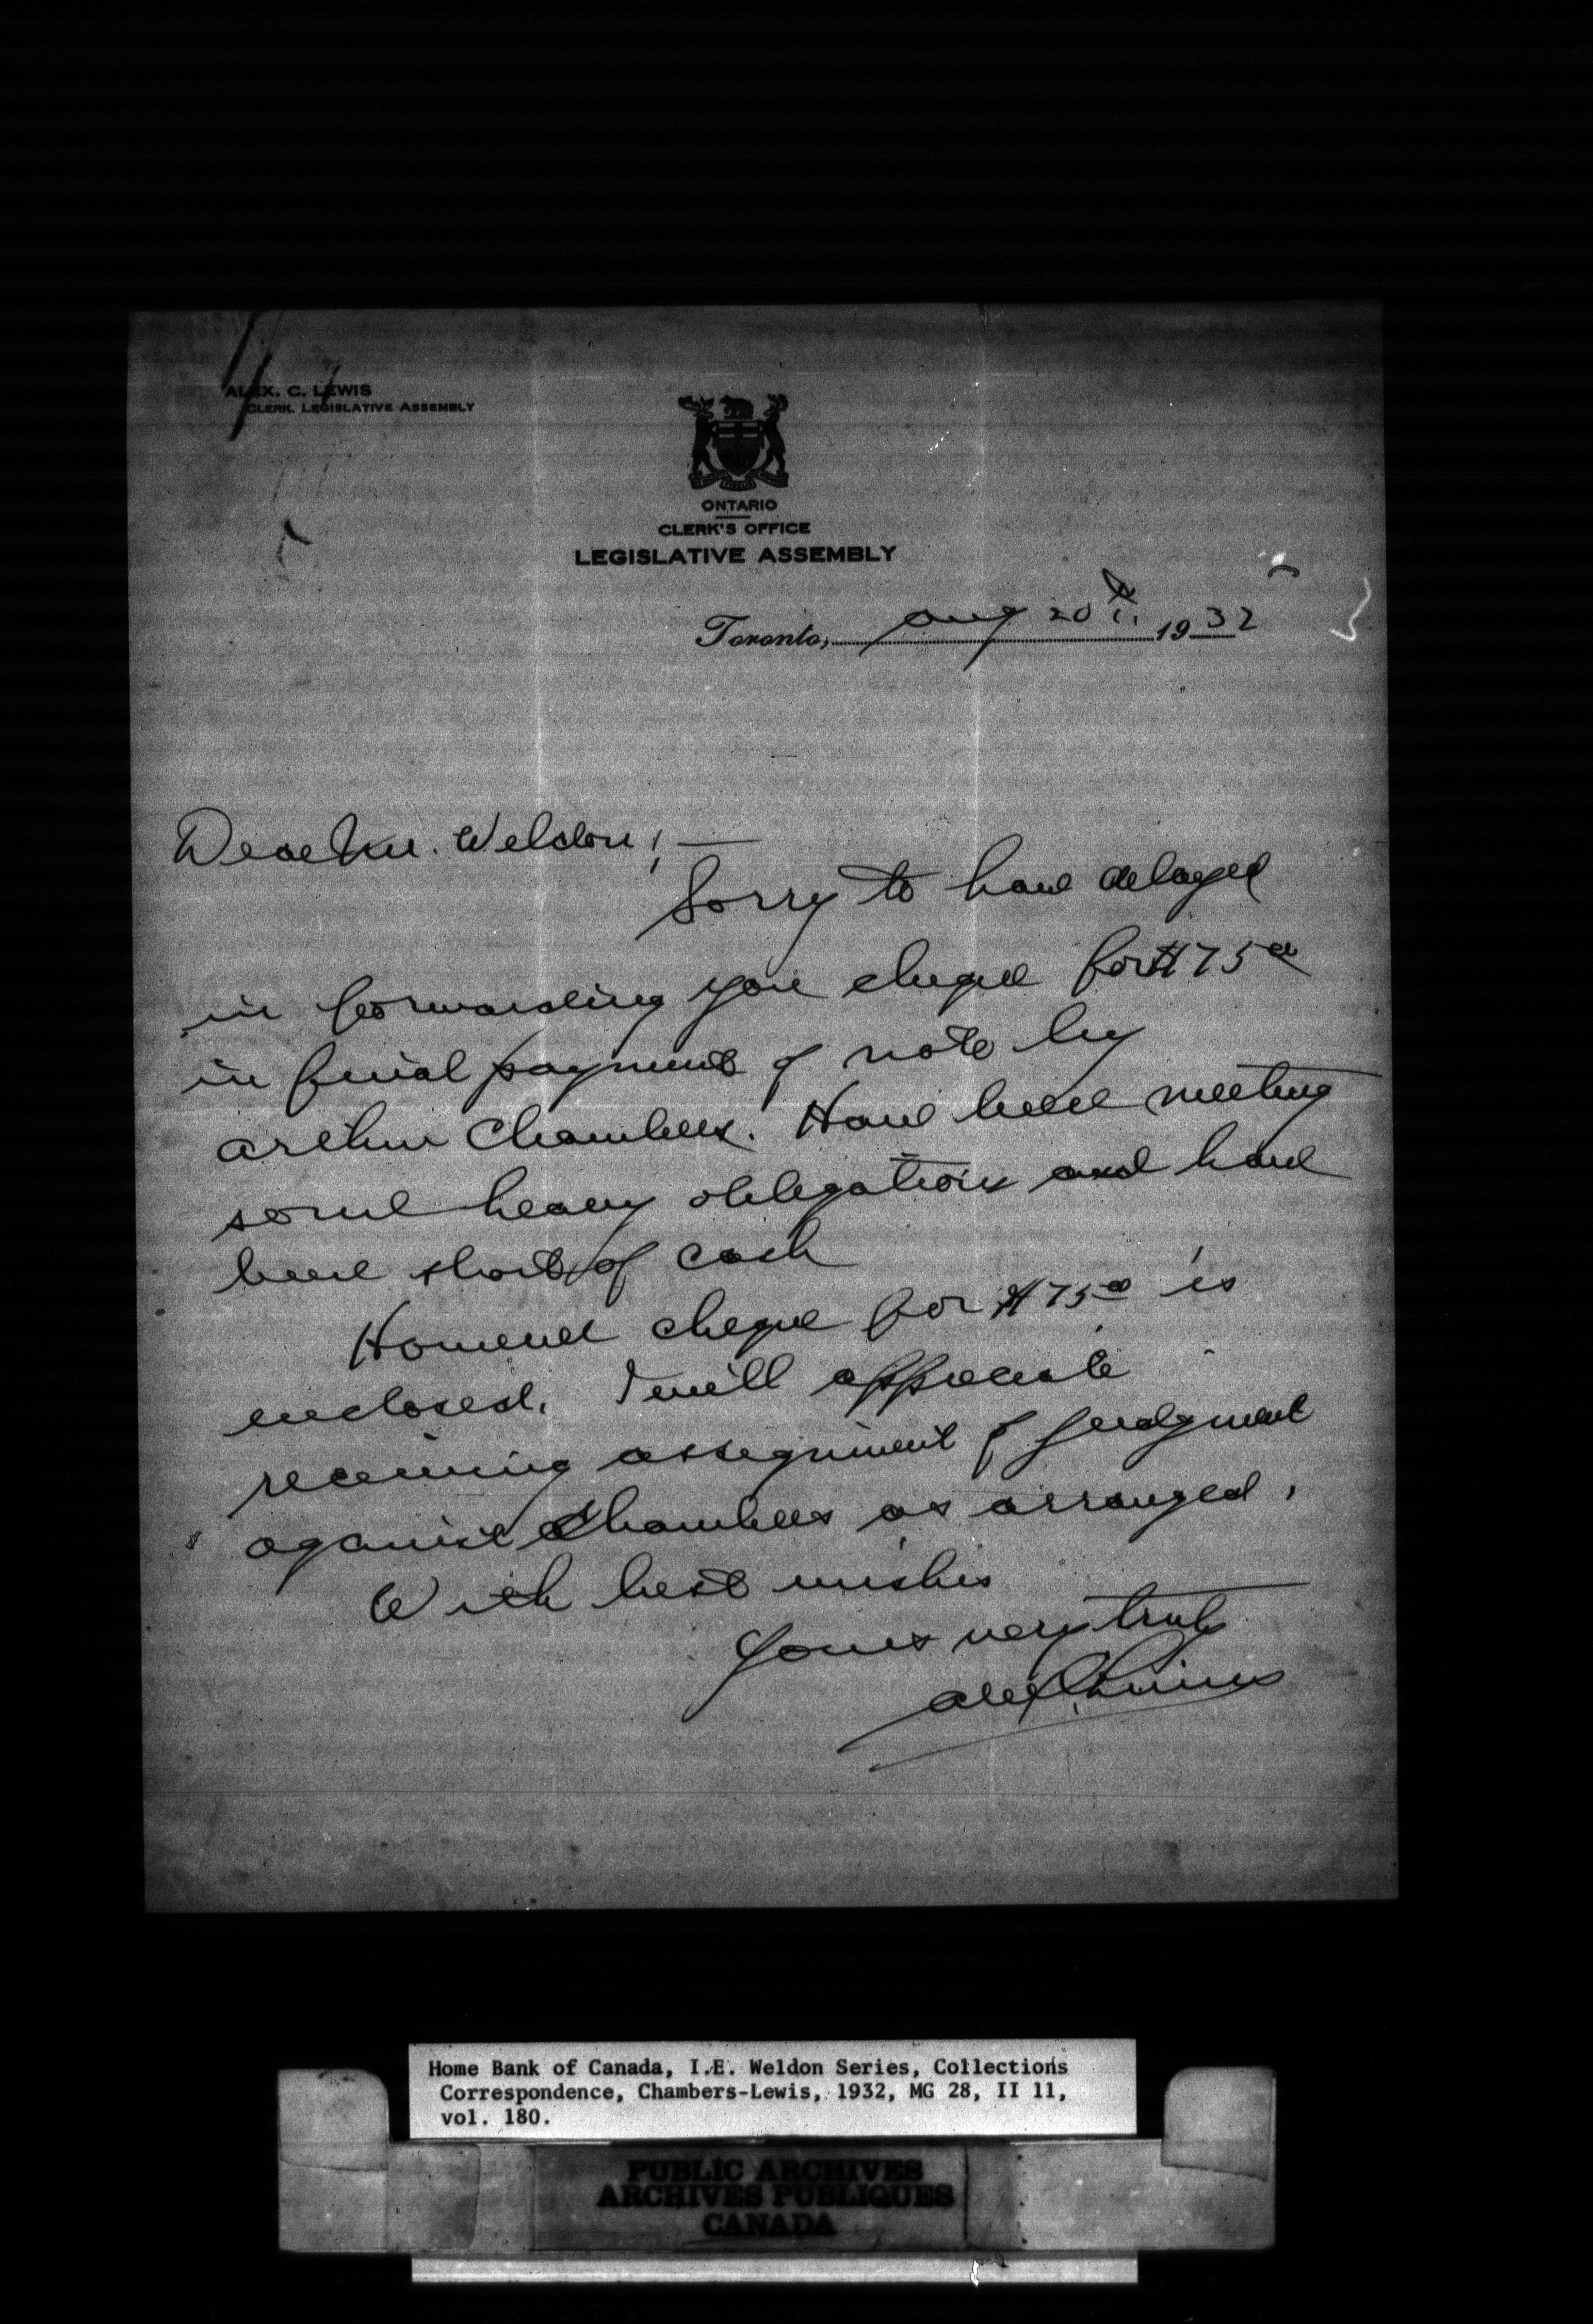 ALEX. C. LEWIS
CLERK. LEGISLATIVE ASSEMBLY
ONTARIO
CLERK'S OFFICE
LEGISLATIVE ASSEMBLY
Toronto, Aug 20th 1932
Dear Mr. Weldon; —
Sorry to have delayed
in forwarding you cheque for $75 00
in final payment of note by
Arthur Chambers. Have been meeting
some heavy obligations and have
been short of cash
However cheque for $75 00 is
enclosed. I will appreciate
receiving assignment of judgment
against Chambers as arranged.
With best wishes
Yours very truly
Alex C. Lewis
Home Bank of Canada, I.E. Weldon Series, Collections
Correspondence, Chambers-Lewis, 1932, MG 28, II 11,
vol. 180.
PUBLIC ARCHIVES
ARCHIVES PUBLIQUES
CANADA